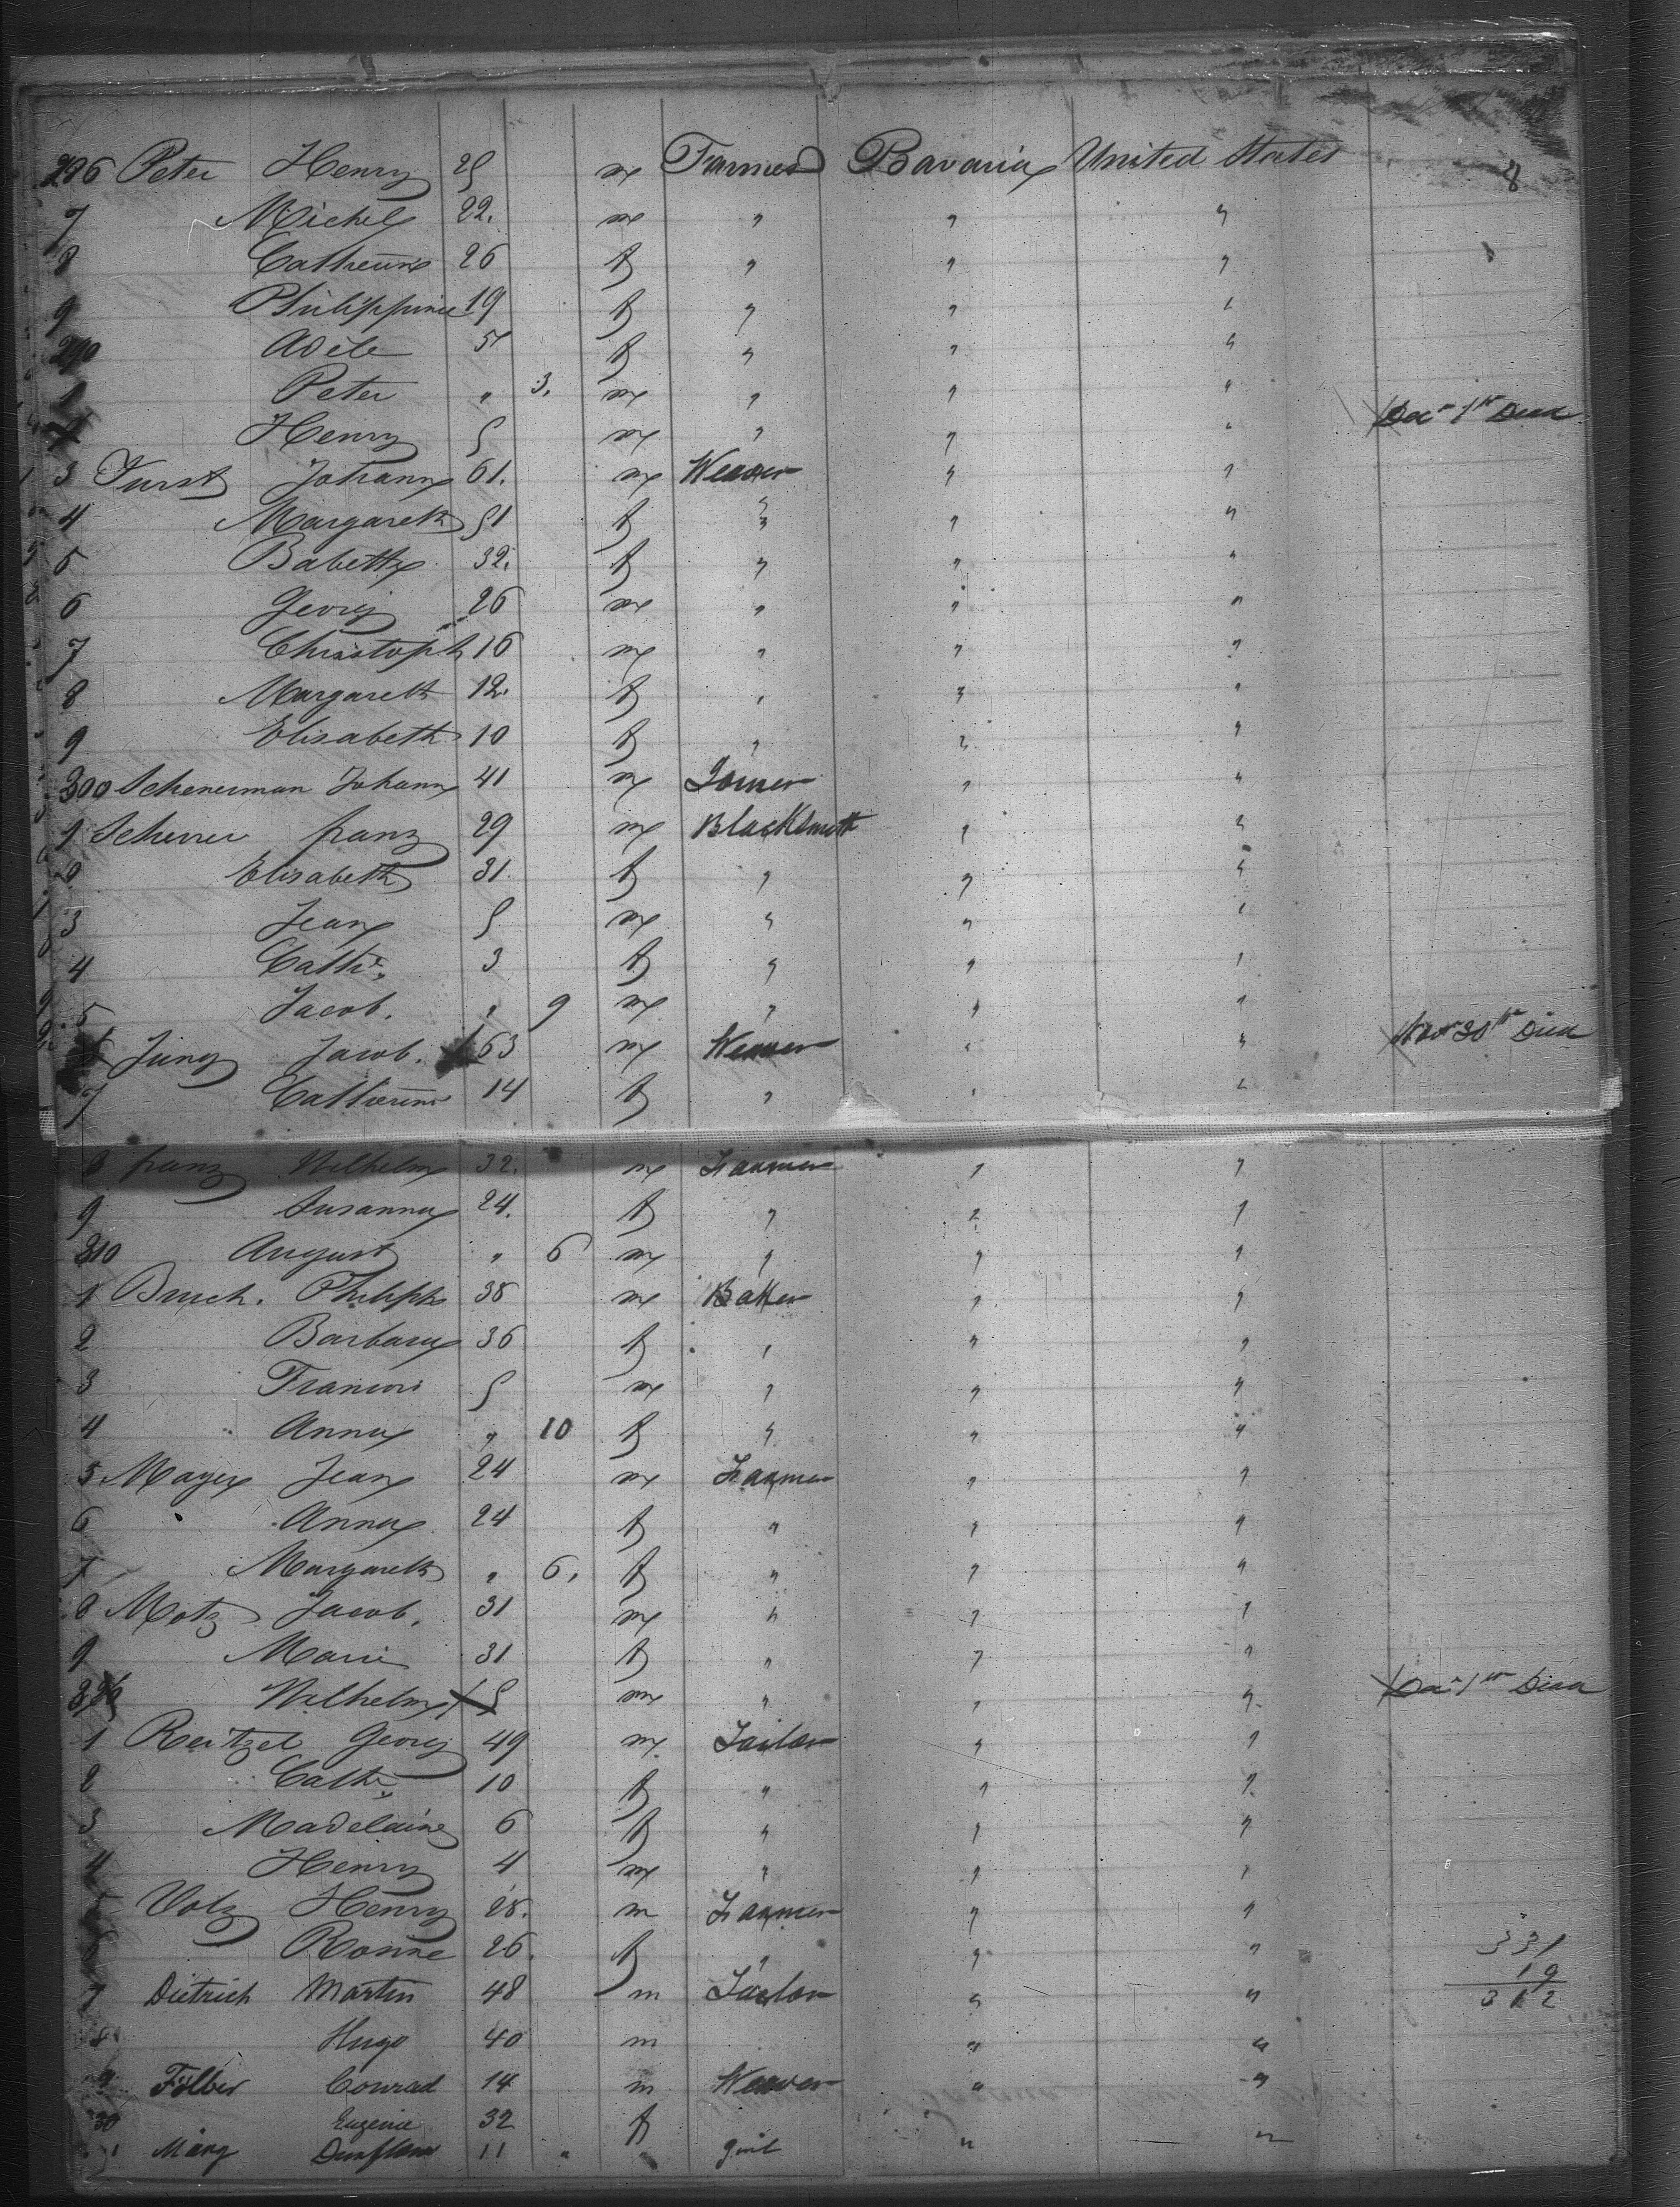 286 Peter Henry 25 m Farmer Bavaria United States 8
7 Michel 22. m " " "
8 Catherine 26 f " " "
9 Philippine 19 f " " "
290 Adele 5 f " " "
1 Peter " 3. m " " "
Henry 5 m " " " Dec 1st Died
3 Furst Johann 61. m Weaver " "
4 Margareth 51 f " " "
5 Babette 32. f " " "
6 Georg 26 m " " "
7 Christoph 16 m " " "
8 Margareth 12. f " " "
9 Elisabeth 10 f " " "
300 Schenerman Johann 41 m Joiner " "
1 Scherrer franz 29 m BlackSmith " "
2 Elisabeth 31. f " " "
3 Jean 5 m " " "
4 Cathe. 3 f " " "
5 Jacob. " 9 m " " "
6 Jung Jacob. 63 m Weaver " " Nov 30th Died
7 Catherine 14 f " " "
8 franz Wilhelm 32. m Farmer " "
9 Susanna 24. f " " "
310 August " 6 m " " "
1 Bruch. Philipp 38 m Baker " "
2 Barbara 36 f " " "
3 Francois 5 m " " "
4 Anna " 10 f " " "
5 Mayer Jean 24 m Farmer " "
6 Anna 24 f " " "
7 Margareth " 6. f " " "
8 Motz Jacob. 31 m " " "
9 Marie 31 f " " "
320 Wilhelm 5 m " " " Dec 1st Died
1 Reitzel Georg 49 m. Tailor " "
2 Cathe. 10 f " " "
3 Madelaine 6 f " " "
4 Henry 4 m " " "
5 Volz Henry 28. m Farmer " "
6 Rosine 26. f " " " 331
19
7 Dietrich Martin 48 m Tailor " " 312
8 Hugo 40 m " "
9 Conrad 14 m Weaver " "
30 Eugenie 32 f
1 11 " " girl " "